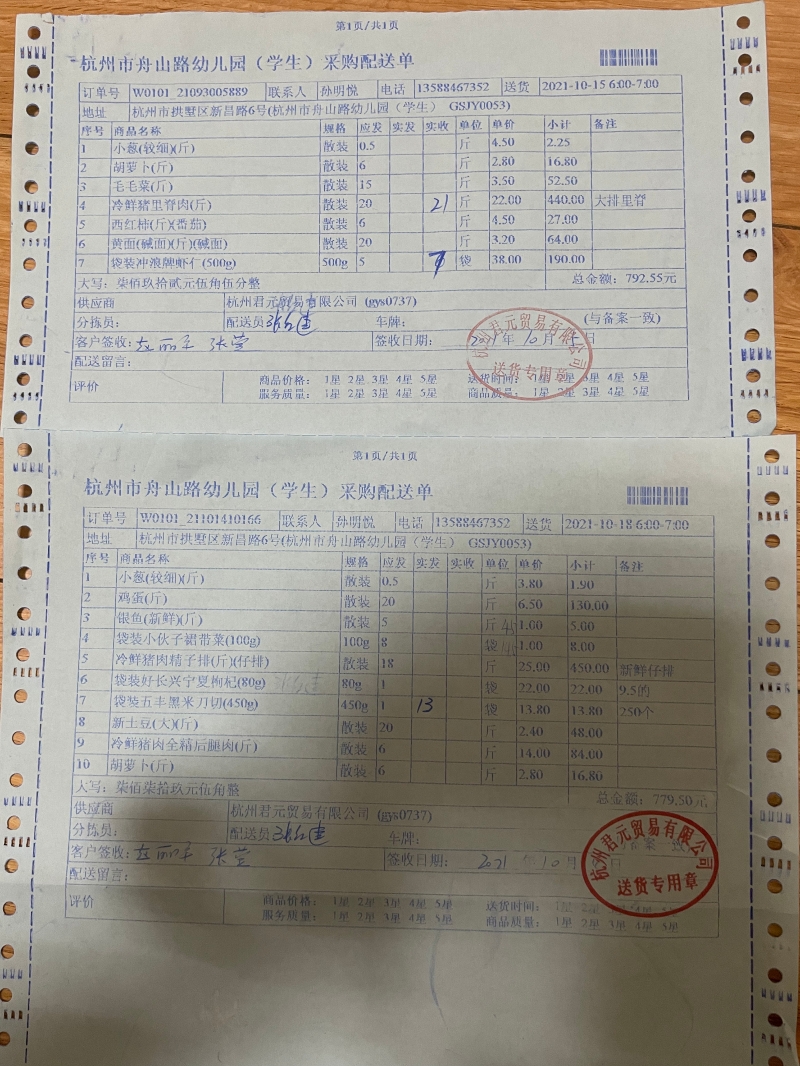 第1页/共1页
杭州市舟山路幼儿园（学生）采购配送单
订单号 W0101_21093005889 联系人 孙明悦 电话 13588467352 送货 2021-10-15 6:00-7:00
地址 杭州市拱墅区新昌路6号(杭州市舟山路幼儿园（学生） GSJY0053)
序号 商品名称 规格 应发 实发 实收 单位 单价 小计 备注
1 小葱(较细)(斤) 散装 0.5 斤 4.50 2.25
2 胡萝卜(斤) 散装 6 斤 2.80 16.80
3 毛毛菜(斤) 散装 15 斤 3.50 52.50
4 冷鲜猪里脊肉(斤) 散装 20 21 斤 22.00 440.00 大排里脊
5 西红柿(斤)(番茄) 散装 6 斤 4.50 27.00
6 黄面(碱面)(斤)(碱面) 散装 20 斤 3.20 64.00
7 袋装冲浪牌虾仁(500g) 500g 5 7 袋 38.00 190.00
大写：柒佰玖拾贰元伍角伍分整 总金额：792.55元
供应商 杭州君元贸易有限公司 (gys0737)
分拣员： 配送员 车牌： (与备案一致)
客户签收： 张莹 签收日期： 年 10 月 日
杭州君元贸易有限公司
送货专用章
配送留言：
评价 商品价格： 1星 2星 3星 4星 5星 送货时间： 1星 2星 3星 4星 5星
服务质量： 1星 2星 3星 4星 5星 商品质量： 1星 2星 3星 4星 5星
第1页/共1页
杭州市舟山路幼儿园（学生）采购配送单
订单号 W0101_21101410166 联系人 孙明悦 电话 13588467352 送货 2021-10-18 6:00-7:00
地址 杭州市拱墅区新昌路6号(杭州市舟山路幼儿园（学生） GSJY0053)
序号 商品名称 规格 应发 实发 实收 单位 单价 小计 备注
1 小葱(较细)(斤) 散装 0.5 斤 3.80 1.90
2 鸡蛋(斤) 散装 20 斤 6.50 130.00
3 银鱼(新鲜)(斤) 散装 5 斤 1.00 5.00
4 袋装小伙子裙带菜(100g) 100g 8 袋 1.00 8.00
5 冷鲜猪肉精子排(斤)(仔排) 散装 18 斤 25.00 450.00 新鲜仔排
6 袋装好长兴宁夏枸杞(80g) 80g 1 袋 22.00 22.00 9.5的
7 袋装五丰黑米刀切(450g) 450g 1 13 袋 13.80 13.80 250个
8 新土豆(大)(斤) 散装 20 斤 2.40 48.00
9 冷鲜猪肉全精后腿肉(斤) 散装 6 斤 14.00 84.00
10 胡萝卜(斤) 散装 6 斤 2.80 16.80
大写：柒佰柒拾玖元伍角整 总金额：779.50元
供应商 杭州君元贸易有限公司 (gys0737)
分拣员： 配送员 车牌： 备案一致
客户签收： 张莹 签收日期： 2021 年 10 月 日
杭州君元贸易有限公司
送货专用章
配送留言：
评价 商品价格： 1星 2星 3星 4星 5星 送货时间： 1星 2星 3星 4星 5星
服务质量： 1星 2星 3星 4星 5星 商品质量： 1星 2星 3星 4星 5星